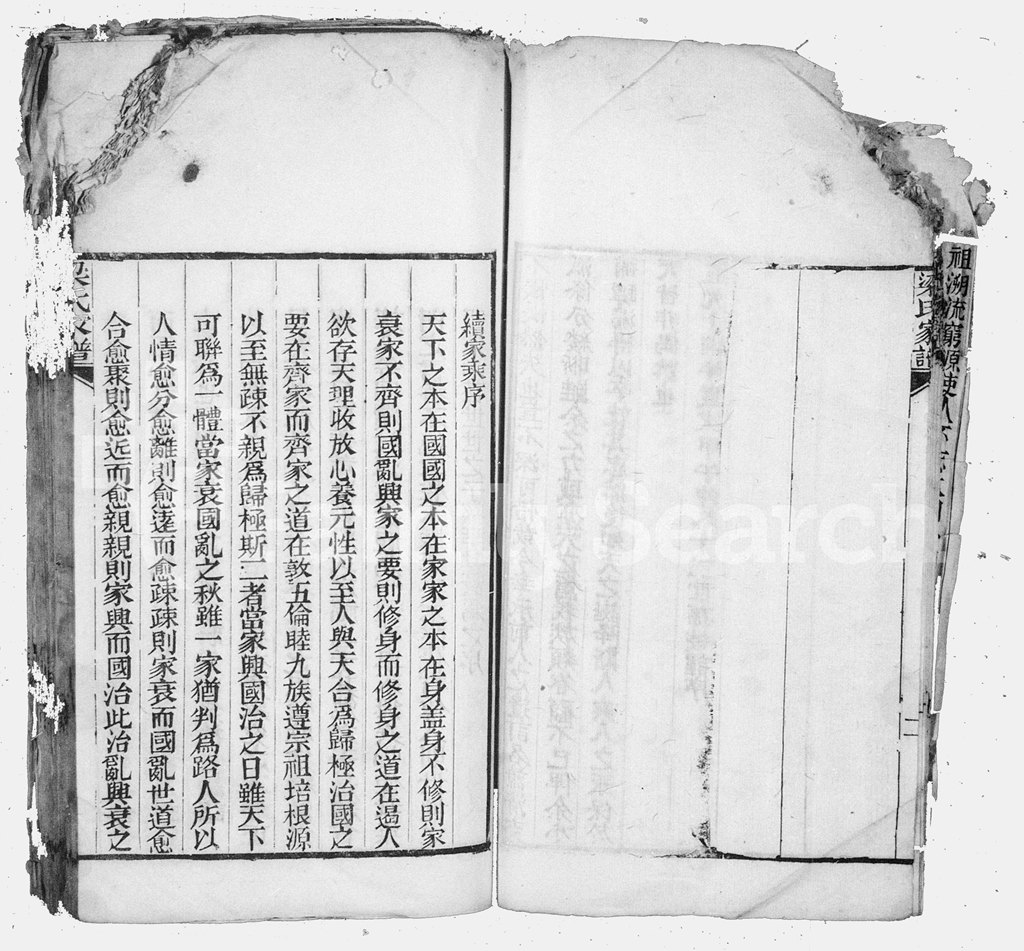 祖溯流窮源使人不
梁氏家譜
二
續家乘序
天下之本在國國之本在家家之本在身盖身不修則家
衰家不齊則國亂興家之要則修身而修身之道在遏人
欲存天理收放心養元性以至人與天合爲歸極治國之
要在齊家而齊家之道在敦五倫睦九族遵宗祖培根源
以至無疎不親爲歸極斯二者當家興國治之日雖天下
可聯爲一體當家衰國亂之秋雖一家猶判爲路人所以
人情愈分愈離則愈遠而愈疎疎則家衰而國亂世道愈
合愈聚則愈近而愈親親則家興而國治此治亂興衰之
梁氏家譜